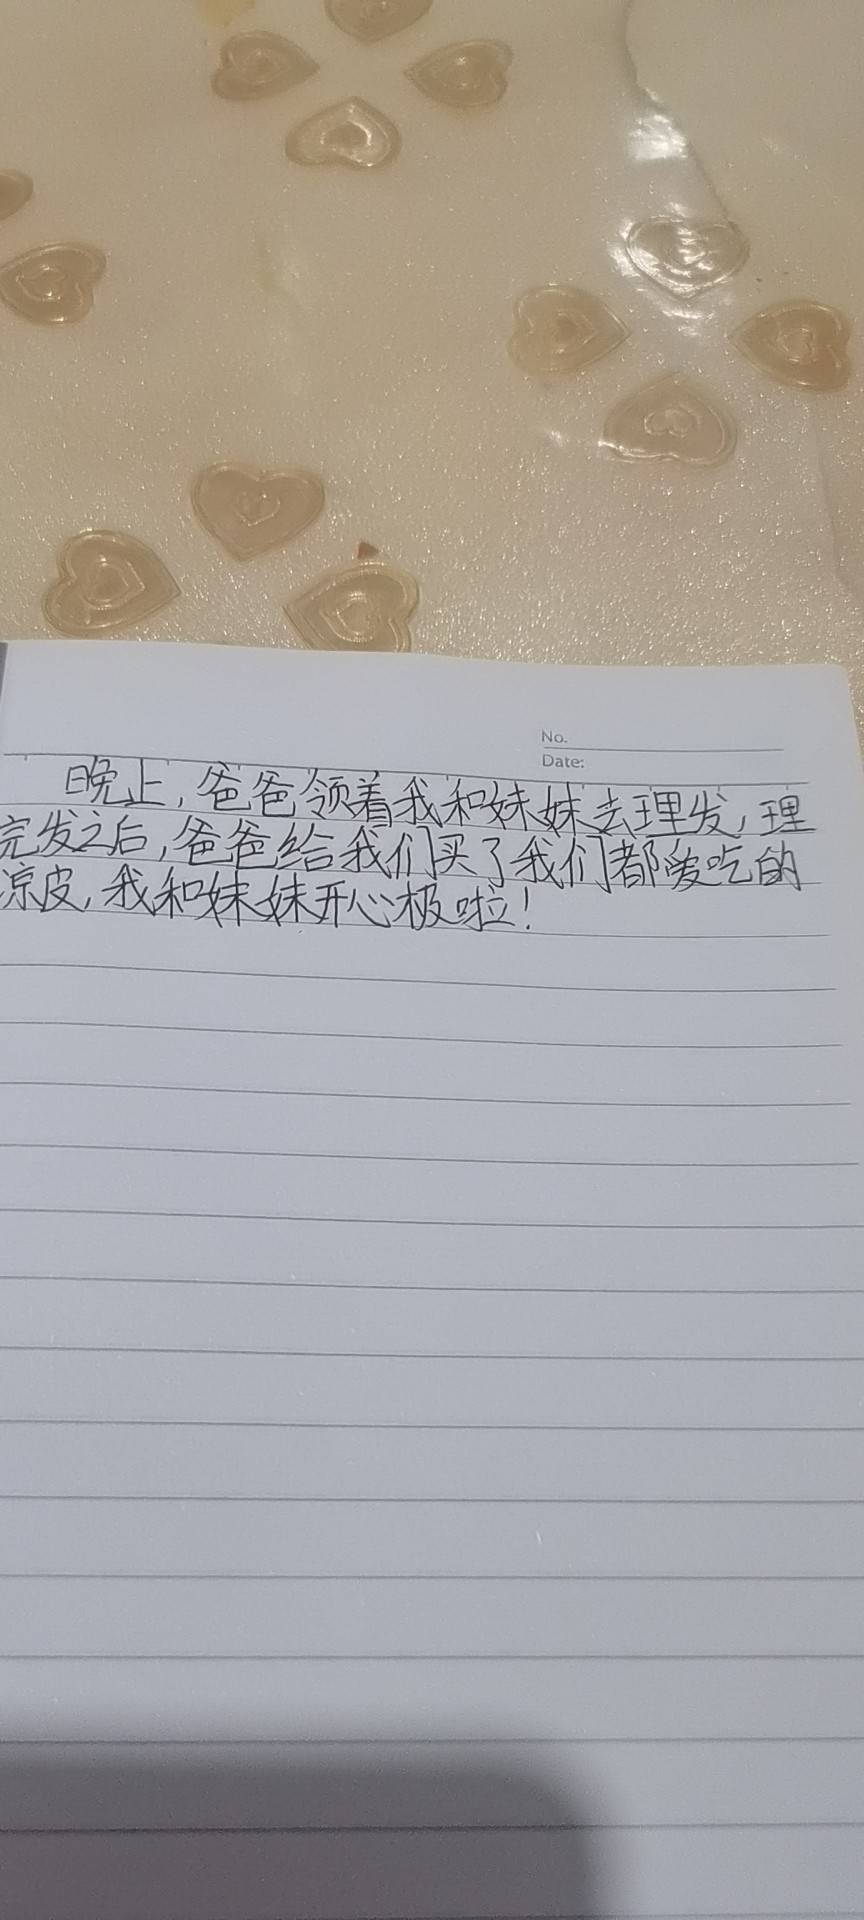 No.
Date:
晚上,爸爸领着我和妹妹去理发,理
完发之后,爸爸给我们买了我们都爱吃的
凉皮,我和妹妹开心极啦!